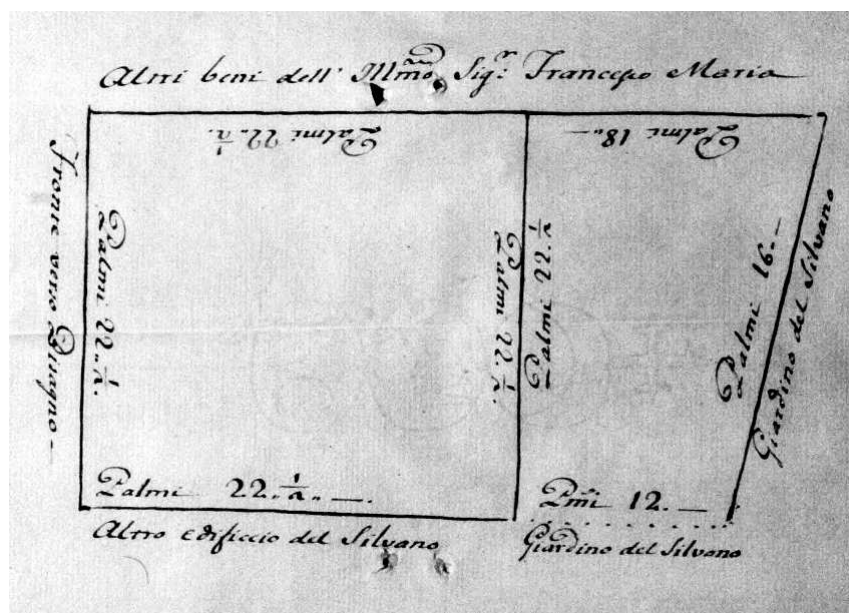 Altri beni dell' Illmo Sigr. Francesco Maria
Palmi 22. 1/2.
Palmi 18.. —
Fronte verso Bisagno —
Palmi 22.. 1/2.
Palmi 22. 1/2.
Palmi 22. 1/2
Palmi 16. —
Giardino del Silvano
Palmi 22.. 1/2.. —.
Pmi 12. —
Altro edificcio del Silvano
Giardino del Silvano